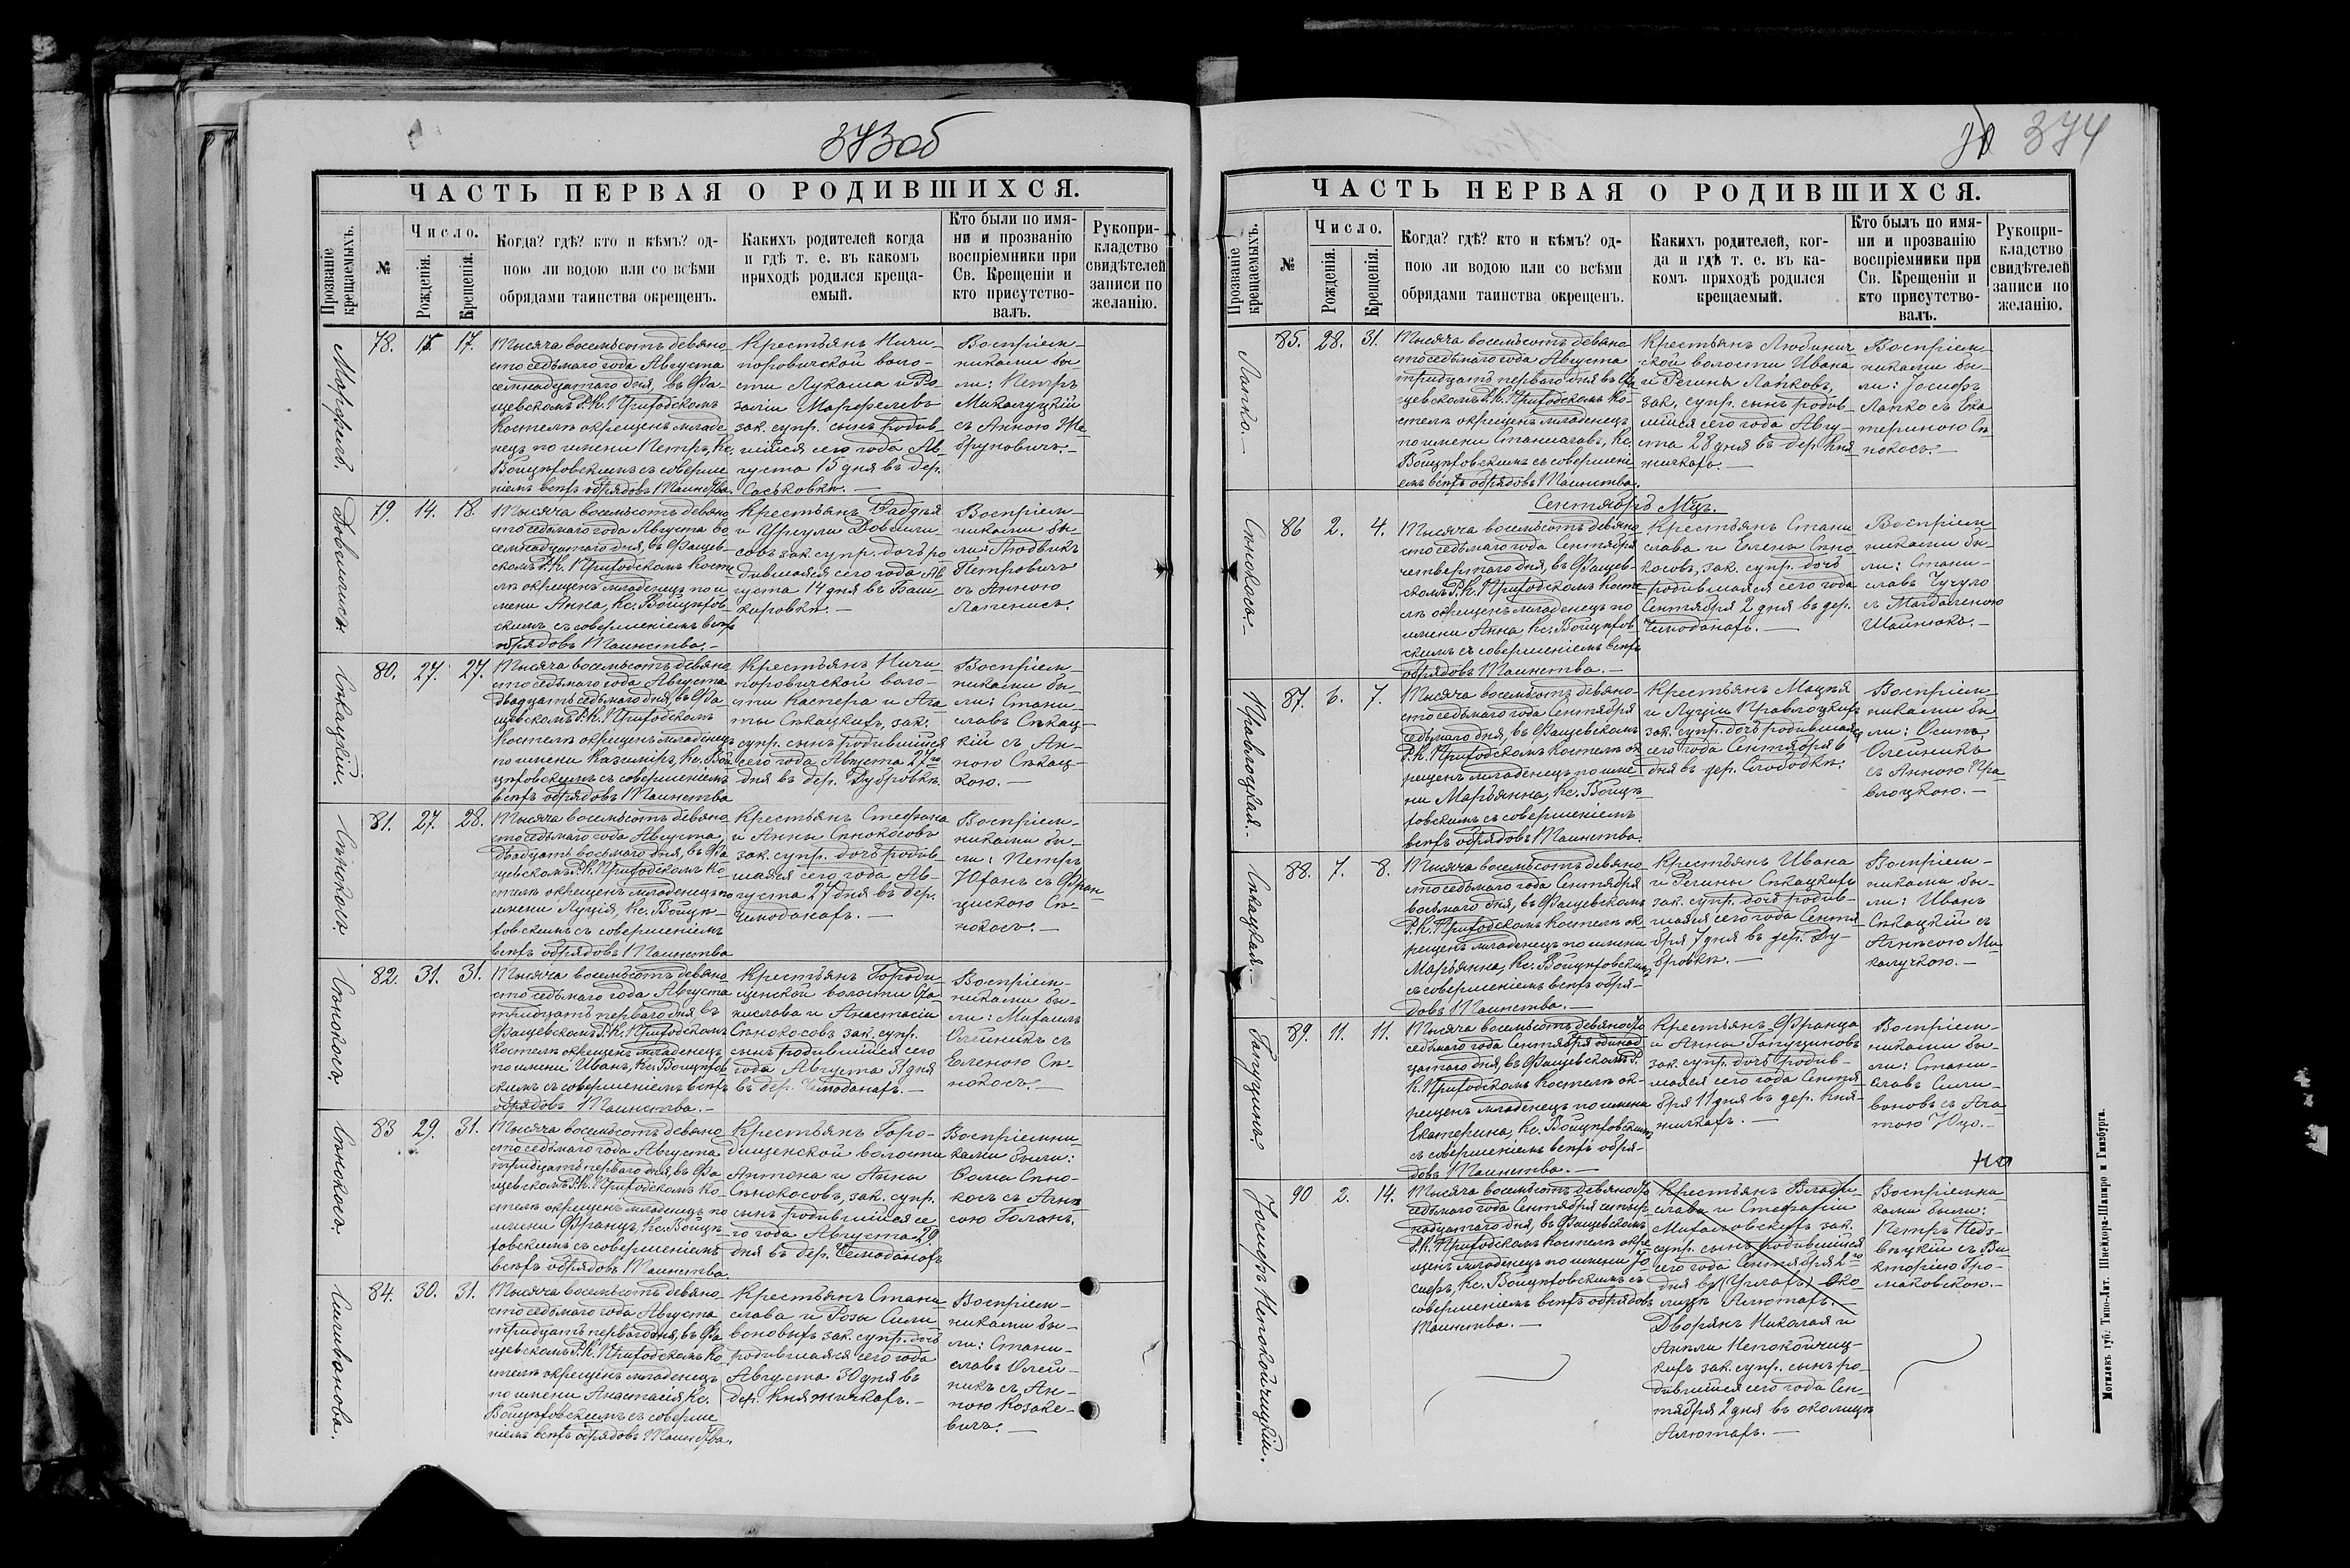 373об
ЧАСТЬ ПЕРВАЯ О РОДИВШИХСЯ.
Прозваніе крещаемыхъ.
№
Число.
Рожденія.
Крещенія.
Когда? гдѣ? кто и кѣмъ? од-
ною ли водою или со всѣми
обрядами таинства окрещенъ.
Какихъ родителей когда
и гдѣ т. е. въ какомъ
приходѣ родился креща-
емый.
Кто были по имя-
ни и прозванію
воспріемники при
Св. Крещеніи и
кто присутство-
валъ.
Рукопри-
кладство
свидѣтелей
записи по
желанію.
78. 15. 17.
Тысяча восемьсотъ девяно-
сто седьмаго года Августа
семнадцатаго дня, въ Фа-
щевскомъ Р.К. Приходскомъ
Костелѣ окрещенъ младе
нецъ по имени Петръ, Кс.
Войцѣховскимъ съ соверше
ніемъ всѣхъ обрядовъ Таинства.
Крестьянъ Ничи-
поровичской воло-
сти Лукаша и Ро-
заліи Марфелевъ
зак. супр. сынъ родив-
шійся сего года Ав-
густа 15 дня въ дер.
Саськовкѣ.
Воспріем-
никами бы-
ли: Петръ
Микалуцкій
съ Анною Же-
бруновичъ.
79. 14. 18.
Тысяча восемьсотъ девяно
сто седьмаго года Августа во
семнадцатаго дня, въ Фащев-
скомъ Р.К. Приходскомъ Косте
лѣ окрещенъ младенецъ по и-
мени Анна, Кс. Войцѣхов-
скимъ съ совершеніемъ всѣхъ
обрядовъ Таинства.
Крестьянъ Фаддея
и Урсули
совъ зак. супр. дочь ро
дившаяся сего года Ав
густа 14 дня въ Баш-
кировкѣ.
Воспріем-
никами бы-
ли: Людвикъ
Петровичъ
съ Анною
Лапенисъ.
Сѣкацкій.
80. 27. 27.
Тысяча восемьсотъ девяно
сто седьмаго года Августа
двадцать седьмаго дня, въ Фа
щевскомъ Р.К. Приходскомъ
Костелѣ окрещенъ младенецъ
по имени Казиміръ, Кс. Вой
цѣховскимъ съ совершеніемъ
всѣхъ обрядовъ Таинства
Крестьянъ Ничи
поровичской воло-
сти Каспера и Ага
ты Сѣкацкихъ, зак.
супр. сынъ родившійся
сего года Августа 27го
дня въ дер. Дубровкѣ.
Воспріем-
никами бы-
ли: Стани-
славъ Сѣкац-
кій съ Ан-
ною Сѣкац-
кою.
Сѣнокосъ.
81. 27. 28.
Тысяча восемьсотъ девяно
сто седьмаго года Августа,
двадцать восьмаго дня, въ Фа
щевскомъ Р.К. Приходскомъ Ко-
стелѣ окрещенъ младенецъ по
имени Луція, Кс. Войцѣ-
ховскимъ съ совершеніемъ
всѣхъ обрядовъ Таинства
Крестьянъ Стефана
и Анны Сѣнокосовъ
зак. супр. дочь родив-
шаяся сего года Ав-
густа 27 дня въ дер.
Чемоданахъ.
Воспріем-
никами бы-
ли: Петръ
Юханъ съ Фран
цискою Сѣ-
нокосъ.
Сѣнокосъ.
82. 31. 31.
Тысяча восемьсотъ девяно
сто седьмаго года Августа
тридцать перваго дня въ
Фащевскомъ Р.К. Приходскомъ
Костелѣ окрещенъ младенецъ
по имени Иванъ, Кс. Войцѣхов
скимъ съ совершеніемъ всѣхъ
обрядовъ Таинства.
Крестьянъ Городи
щенской волости Ста
нислава и Анастасіи
Сѣнокосовъ зак. супр.
сынъ родившійся сего
года Августа 31 дня
въ дер. Чемоданахъ.
Воспріем-
никами бы-
ли: Михаилъ
Олейникъ съ
Еленою Сѣ-
нокосъ.
Сѣнокосъ.
83 29. 31.
Тысяча восемьсотъ девяно
сто седьмаго года Августа
тридцать перваго дня, въ Фа
щевскомъ Р.К. Приходскомъ Ко-
стелѣ окрещенъ младенецъ по
имени Францъ, Кс. Войцѣ-
ховскимъ съ совершеніемъ
всѣхъ обрядовъ Таинства.
Крестьянъ Горо-
дищенской волости
Антона и Анны
Сѣнокосовъ, зак. супр.
сынъ родившійся се
го года Августа 29
дня въ дер. Чемоданахъ
Воспріемни
ками были:
Сѣно-
косъ съ Агнѣ
сою Галанъ.
Силивонова.
84. 30. 31.
Тысяча восемьсотъ девяно-
сто седьмаго года Августа
тридцать перваго дня, въ Фа
щевскомъ Р.К. Приходскомъ Ко
стелѣ окрещенъ младенецъ
по имени Анастасія Кс.
Войцѣховскимъ съ соверше
ніемъ всѣхъ обрядовъ Таинства.
Крестьянъ Стани
слава и Розы Сили-
воновыхъ зак. супр. дочь
родившаяся сего года
Августа 30 дня въ
дер. Княжичкахъ.
Воспріем-
никами бы-
ли: Стани-
славъ Олей-
никъ съ Ан-
ною Козаке-
вичъ.
374
ЧАСТЬ ПЕРВАЯ О РОДИВШИХСЯ.
Прозваніе крещаемыхъ.
№
Число.
Рожденія.
Крещенія.
Когда? гдѣ? кто и кѣмъ? од-
ною ли водою или со всѣми
обрядами таинства окрещенъ.
Какихъ родителей, ког-
да и гдѣ т. е. въ ка-
комъ приходѣ родился
крещаемый.
Кто былъ по имя-
ни и прозванію
воспріемники при
Св. Крещеніи и
кто присутство-
валъ.
Рукопри-
кладство
свидѣтелей
записи по
желанію.
Лапко.
85. 28. 31.
Тысяча восемьсотъ девяно
сто седьмаго года Августа
тридцать перваго дня въ Фа
щевскомъ Р.К. Приходскомъ Ко-
стелѣ окрещенъ младенецъ
по имени Станиславъ, Кс.
Войцѣховскимъ съ совершені
емъ всѣхъ обрядовъ Таинства.
Крестьянъ Любинич
ской волости Ивана
и Регины Лапковъ,
зак. супр. сынъ родив-
шійся сего года Авгу-
ста 28 дня въ дер. Кня
жичкахъ.
Воспріем-
никами бы-
ли: Іосифъ
Лапко съ Ека
териною Сѣ
нокосъ.
Сентябрь Мцъ.
Сѣнокосъ.
86 2. 4.
Тысяча восемьсотъ девяно
сто седьмаго года Сентября
четвертаго дня, въ Фащев-
скомъ Р.К. Приходскомъ Косте
лѣ окрещенъ младенецъ по
имени Анна, Кс. Войцѣхов
скимъ съ совершеніемъ всѣхъ
обрядовъ Таинства.
Крестьянъ Стани
слава и Елены Сѣно
косовъ, зак. супр. дочь
родившаяся сего года
Сентября 2 дня въ дер.
Чемоданахъ.
Воспріем
никами бы-
ли: Стани-
славъ Чучуло
съ Магдаленою
Шайнюкъ.
Правлоцкая.
87. 6. 7.
Тысяча восемьсотъ девяно-
сто седьмаго года Сентября
седьмаго дня, въ Фащевскомъ
Р.К. Приходскомъ Костелѣ ок
рещенъ младенецъ по име
ни Марьянна, Кс. Войцѣ
ховскимъ съ совершеніемъ
всѣхъ обрядовъ Таинства.
Крестьянъ Мацѣя
и Луціи Правлоцкихъ
зак. супр. дочь родившаяся
сего года Сентября 6
дня въ дер. Слободкѣ.
Воспріем
никами бы
ли: Осипъ
Олейникъ
съ Анною Пра
влоцкою.
Сѣкацкая.
88. 7. 8.
Тысяча восемьсотъ девяно-
сто седьмаго года Сентября
восьмаго дня, въ Фащевскомъ
Р.К. Приходскомъ Костелѣ ок
рещенъ младенецъ по имени
Марьянна, Кс. Войцѣховскимъ
съ совершеніемъ всѣхъ обря-
довъ Таинства.
Крестьянъ Ивана
и Регины Сѣкацкихъ
зак. супр. дочь родив-
шаяся сего года Сентя
бря 7 дня въ дер. Ду-
бровкѣ.
Воспріем-
никами бы-
ли: Иванъ
Сѣкацкій съ
Агнѣсою Ми
калуцкою.
89. 11. 11.
Тысяча восемьсотъ девяносто
седьмаго года Сентября одинад
цатаго дня, въ Фащевскомъ Р.
К. Приходскомъ Костелѣ ок-
рещенъ младенецъ по имени
Екатерина, Кс. Войцѣховскимъ
съ совершеніемъ всѣхъ обря-
довъ Таинства.
Крестьянъ Франца
и Анны
зак. супр. дочь родив-
шаяся сего года Сентя
бря 11 дня въ дер. Кня-
жичкахъ.
Воспріем-
никами бы-
ли: Стани-
славъ Сили-
воновъ съ Ага
тою Юцо.
Іосифъ Непокойчицкій.
90 2. 14.
Тысяча восемьсотъ девяносто
седьмаго года Сентября четыр
надцатаго дня, въ Фащевскомъ
Р.К. Приходскомъ Костелѣ окре
щенъ младенецъ по имени Іо
сифъ, Кс. Войцѣховскимъ съ
совершеніемъ всѣхъ обрядовъ
Таинства.
Крестьянъ Влади-
слава и Стефаніи
Михаловскихъ зак.
супр. сынъ родившійся
сего года Сентября 2го
дня въ око-
лицѣ Алютахъ.
Дворянъ Николая и
Анѣли Непокойчиц-
кихъ зак. супр. сынъ ро-
дившійся сего года Сен-
тября 2 дня въ околицѣ
Алютахъ.
Воспріемни
ками были:
Петръ Недз-
вѣцкій съ Ви-
кторіею Гро-
маковскою.
Могилевъ губ. Типо-Лит. Шнейдора-Шапиро и Гинзбурга.